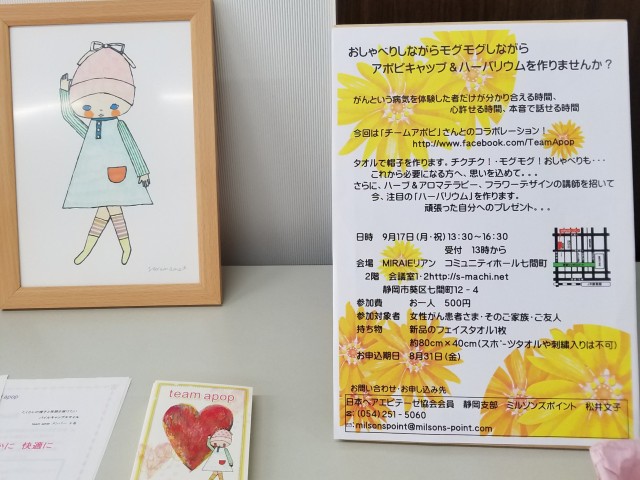 おしゃべりしながらモグモグしながら
アポピキャップ&ハーバリウムを作りませんか?
がんという病気を体験した者だけが分かり合える時間、
心許せる時間、本音で話せる時間
今回は「チームアポピ」さんとのコラボレーション!
http://www.facebook.com/TeamApop
タオルで帽子を作ります。チクチク!・モグモグ!おしゃべりも・・・
これから必要になる方へ、思いを込めて。。。
さらに、ハーブ&アロマテラピー、フラワーデザインの講師を招いて
今、注目の「ハーバリウム」を作ります。
頑張った自分へのプレゼント。。。
日時 9月17日(月・祝)13:30~16:30
受付 13時から
会場 MIRAIEリアン コミュニティホール七間町
2階 会議室1・2http://s-machi.net
静岡市葵区七間町12-4
参加費 お一人 500円
参加対象者 女性がん患者さま・そのご家族・ご友人
持ち物 新品のフェイスタオル1枚
約80cm×40cm(スポーツタオルや刺繍入りは不可)
お申込期日 8月31日(金)
お問い合わせ・お申し込み先
日本ヘアエピテーゼ協会会員 静岡支部 ミルソンズポイント 松井文子
☎:(054)251-5060
✉:milsonspoint@milsons-point.com
team apop
apop
に 快適に